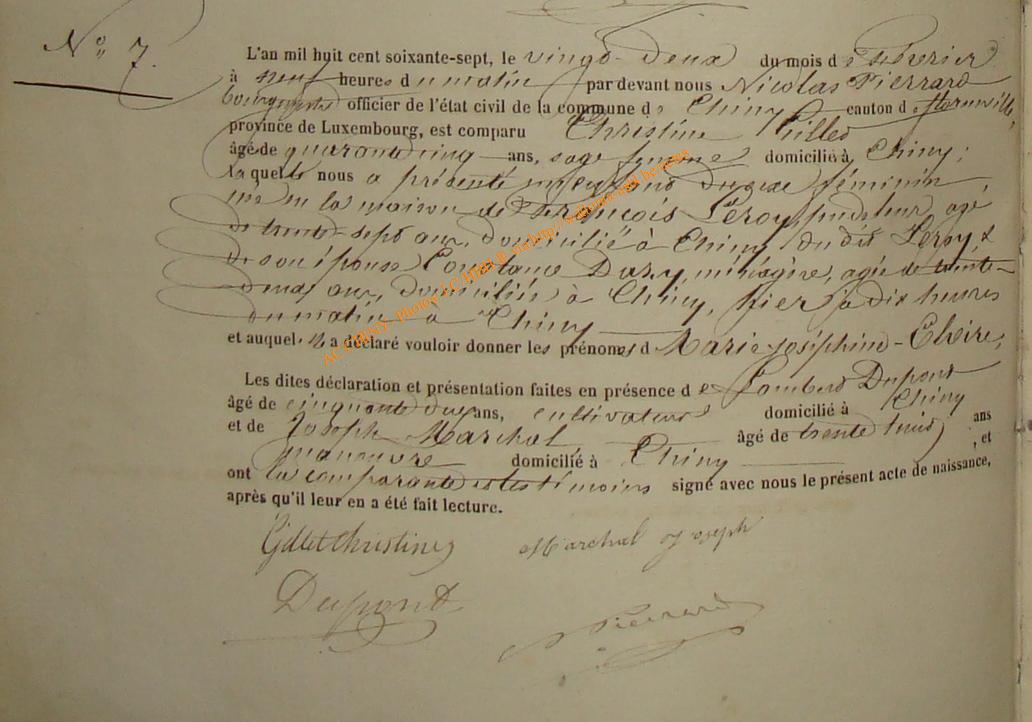 N° 7.
L'an mil huit cent soixante-sept, le vingt-deux du mois de février
à neuf heures du matin par devant nous Nicolas Pierrard
bourgmestre officier de l'état civil de la commune de Chiny canton de florenville,
province de Luxembourg, est comparu Christine Gillet
âgé de quarante cinq ans, sage femme domicilié à Chiny;
laquelle nous a présenté un enfant du sexe féminin,
née en la maison de François Leroy, age
de trente-sept ans, domicilié à Chiny, du dit Leroy, &
de son épouse Constance ménagère, agée de trente-
deux ans, domiciliée à Chiny, hier à dix heures
du matin à Chiny
et auquel il a déclaré vouloir donner les prénoms de Marie-Joséphine-
Les dites déclaration et présentation faites en présence de Lambert Dupont
âgé de cinquante ans, cultivateur domicilié à Chiny
et de Joseph Marchal, âgé de trente ans
manœuvre domicilié à Chiny ; et
ont la comparante et les témoins signé avec nous le présent acte de naissance,
après qu'il leur en a été fait lecture.
Gillet Christine Marchal Joseph
Dupont
Pierrard